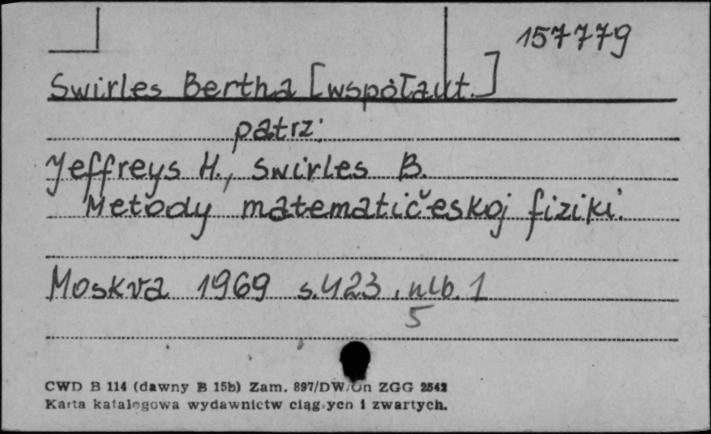 157779
Swirles Bertha [współaut.]
patrz:
Jeffreys H., Swirles B.
Metody matematičeskoj fiziki.
Moskva 1969 s. 423, nlb. 1
5
CWD B 114 (dawny B 15b) Zam. 897/DW/Gn ZGG 2542
Karta katalogowa wydawnictw ciągłych i zwartych.